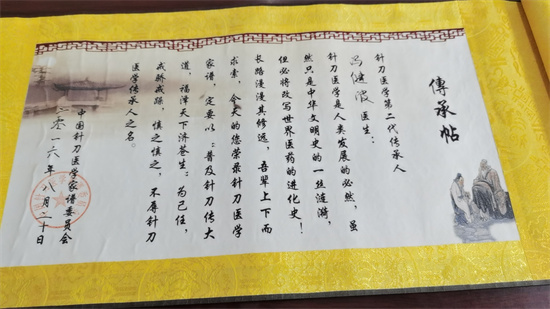 傳承帖
针刀医学第二代传承人
医生：
针刀医学是人类发展的必然，虽
然只是中华文明史的一丝涟漪，
但必将改写世界医药的进化史！
长路漫漫其修远，吾辈上下而
求索，今天的您荣录针刀医学
家谱，定要以：普及针刀传大
道，福泽天下济苍生：为己任，
戒骄戒躁，慎之慎之，不辱针刀
医学传承人之名。
中国针刀医学家谱委员会
二零一六年八月二十日